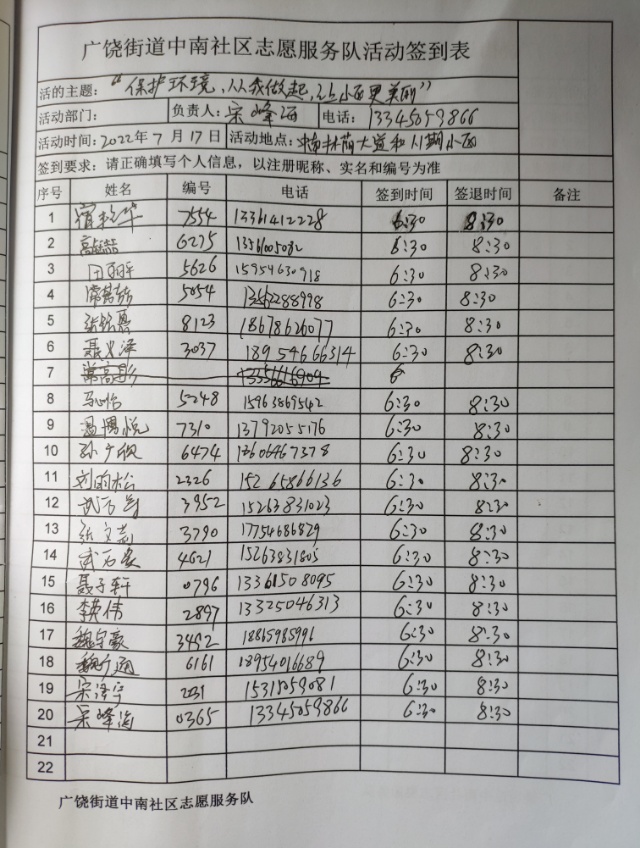 广饶街道中南社区志愿服务队活动签到表
活的主题：“保护环境，从我做起，让小区更美丽”
活动部门： 负责人：宋峰海 电话：13345059866
活动时间：2022年7月17日 活动地点：中南林荫大道和八期小区
签到要求：请正确填写个人信息，以注册昵称、实名和编号为准
序号 姓名 编号 电话 签到时间 签退时间 备注
1 7554 13361412228 6:30 8:30
2 6275 13561005082 6:30 8:30
3 5626 15954630918 6:30 8:30
4 5054 6:30 8:30
5 8123 18678626077 6:30 8:30
6 聂义泽 3037 18954666314 6:30 8:30
7 常高彬 6
8 马心怡 5248 15963869542 6:30 8:30
9 温博悦 7310 13792055176 6:30 8:30
10 孙广欣 6474 12606467378 6:30 8:30
11 刘明松 2326 15265866136 6:30 8:30
12 武万 3952 15263831023 6:30 8:30
13 张文志 3790 17754686829 6:30 8:30
14 武万 4621 15263831805 6:30 8:30
15 聂子轩 0796 13361508095 6:30 8:30
16 李英伟 2897 13325046313 6:30 8:30
17 魏宇豪 3492 18865985991 6:30 8:30
18 魏广通 6161 18954016689 6:30 8:30
19 宋泽宇 2031 15318059081 6:30 8:30
20 宋峰海 0365 13345059866 6:30 8:30
21
22
广饶街道中南社区志愿服务队